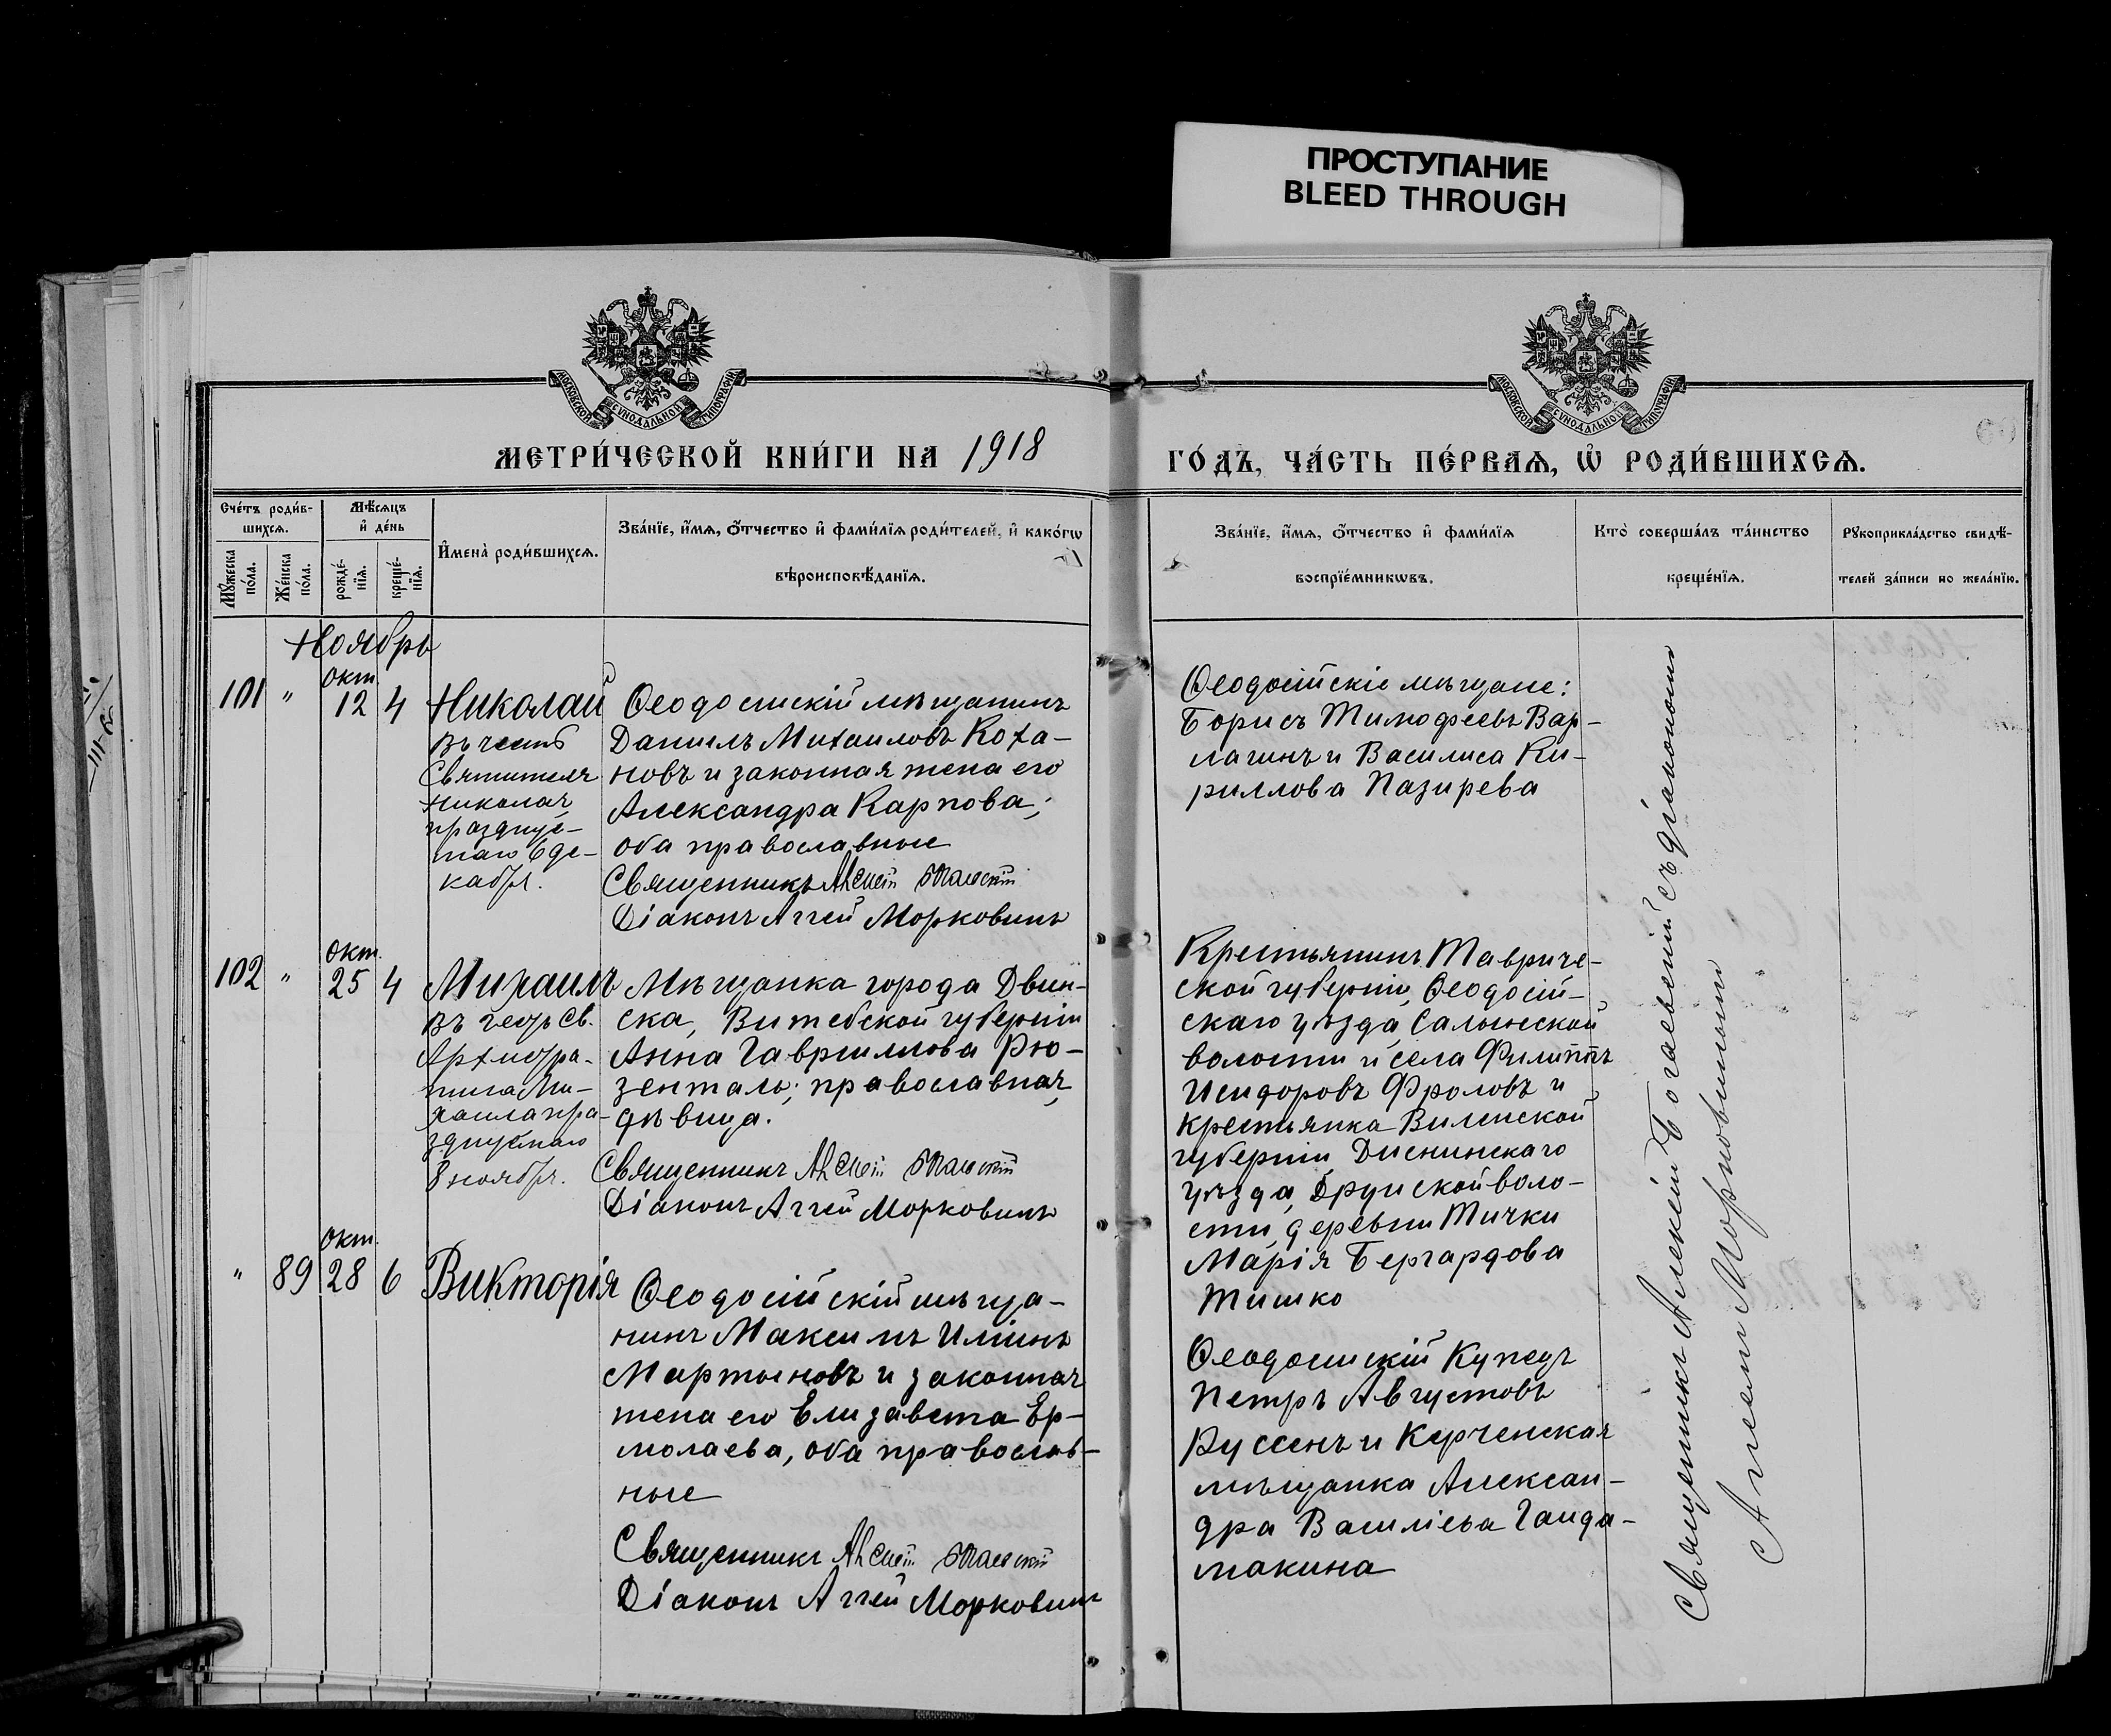 ПРОСТУПАНИЕ
BLEED THROUGH
МОСКОВСКОЙ СѴНОДАЛЬНОЙ ТИПОГРАФІИ
МОСКОВСКОЙ СѴНОДАЛЬНОЙ ТИПОГРАФІИ
МЕТРИ́ЧЕСКОЙ КНИ́ГИ НА 1918
ГО́ДЪ, ЧА́СТЬ ПЕ́РВАѦ, Ѡ РОДИ́ВШИХСѦ.
Сче́тъ роди́в-
шихсѧ.
Мꙋ́жеска по́ла.
Же́нска по́ла.
Мѣ́сѧцъ
и де́нь
рожде́-
нїѧ.
креще́-
нїѧ.
И҆мена̀ роди́вшихсѧ.
Зва́нїе, и҆́мѧ, ѻ҆́тчество и҆ фами́лїѧ роди́телей, и҆ како́гѡ
вѣроисповѣ́данїѧ.
Зва́нїе, и҆́мѧ, ѻ҆́тчество и҆ фами́лїѧ
воспрїе́мникѡвъ.
Кто̀ соверша́лъ та́инство
креще́нїѧ.
Рꙋкоприкла́дство свидѣ́-
телей за́писи по жела́нїю.
Ноябрь
окт.
101 " 12 4 Николай
въ честь
Святителя
Николая,
празднуе-
маго 6 де-
кабря.
Ѳеодосійскій мѣщанинъ
Даніилъ Михаиловъ Коха-
новъ и законная жена его
Александра Карпова;
оба православные
Священникъ Алексій
Діаконъ Аггей Морковинъ
Ѳеодосійскіе мѣщане:
Борисъ Тимофеевъ Вар-
лагинъ и Василиса Ки-
риллова Пазирева
окт.
102 " 25 4 Михаилъ
въ честь св.
Архистра-
тига Ми-
хаила пра-
зднуемаго
8 ноября.
Мѣщанка города Двин-
ска, Витебской губерніи
Анна Гавриллова Рю-
зенталь; православная,
дѣвица.
Священникъ Алексій
Діаконъ Аггей Морковинъ
Крестьянинъ Тавриче-
ской губерніи, Ѳеодосій-
скаго уѣзда Салынской
волости и села Филиппъ
Исидоровъ Фроловъ и
крестьянка Виленской
губерніи, Диснинскаго
уѣзда, Друйской воло-
сти, деревни Тички
Марія Бергардова
Тишко
окт.
" 89 28 6 Викторія
Ѳеодосійскій мѣща-
нинъ Максимъ Иліинъ
Мартыновъ и законная
жена его Елизавета Ер-
молаева, оба православ-
ные
Священникъ Алексій
Діаконъ Аггей Морковинъ
Ѳеодосійскій Купецъ
Петръ Августовъ
Руссенъ и Керченская
мѣщанка Алексан-
дра Василіева Гайда-
макина
Священникъ Алексій Богаевскій съ діакономъ
Аггеемъ Морковинымъ